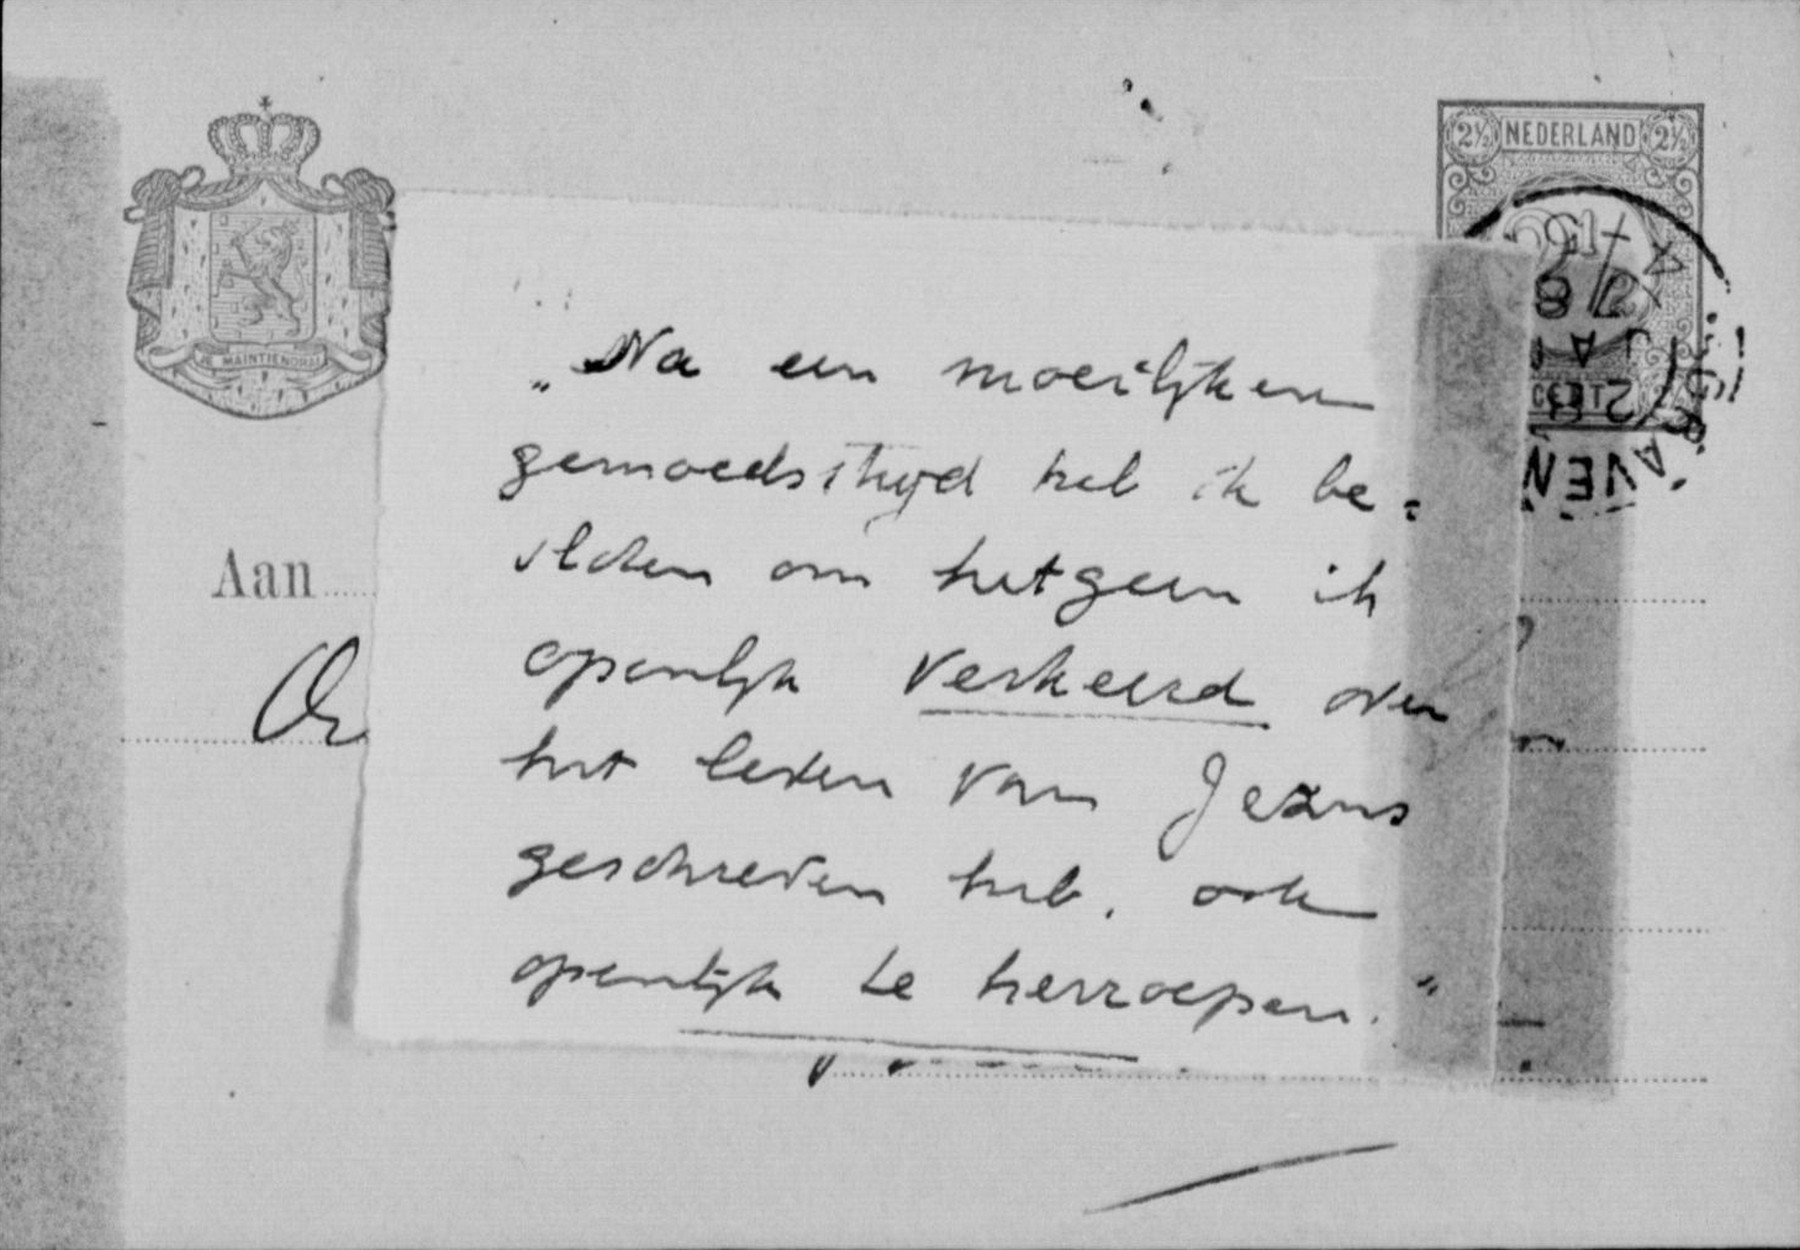 JE MAINTIENDRAI
2½ NEDERLAND 2½
CENT
Aan
„Na een moeilijken
gemoedsstrijd heb ik be=
sloten om hetgeen ik
openlijk verkeerd over
het leven van Jezus
geschreven heb, ook
openlijk te herroepen.”